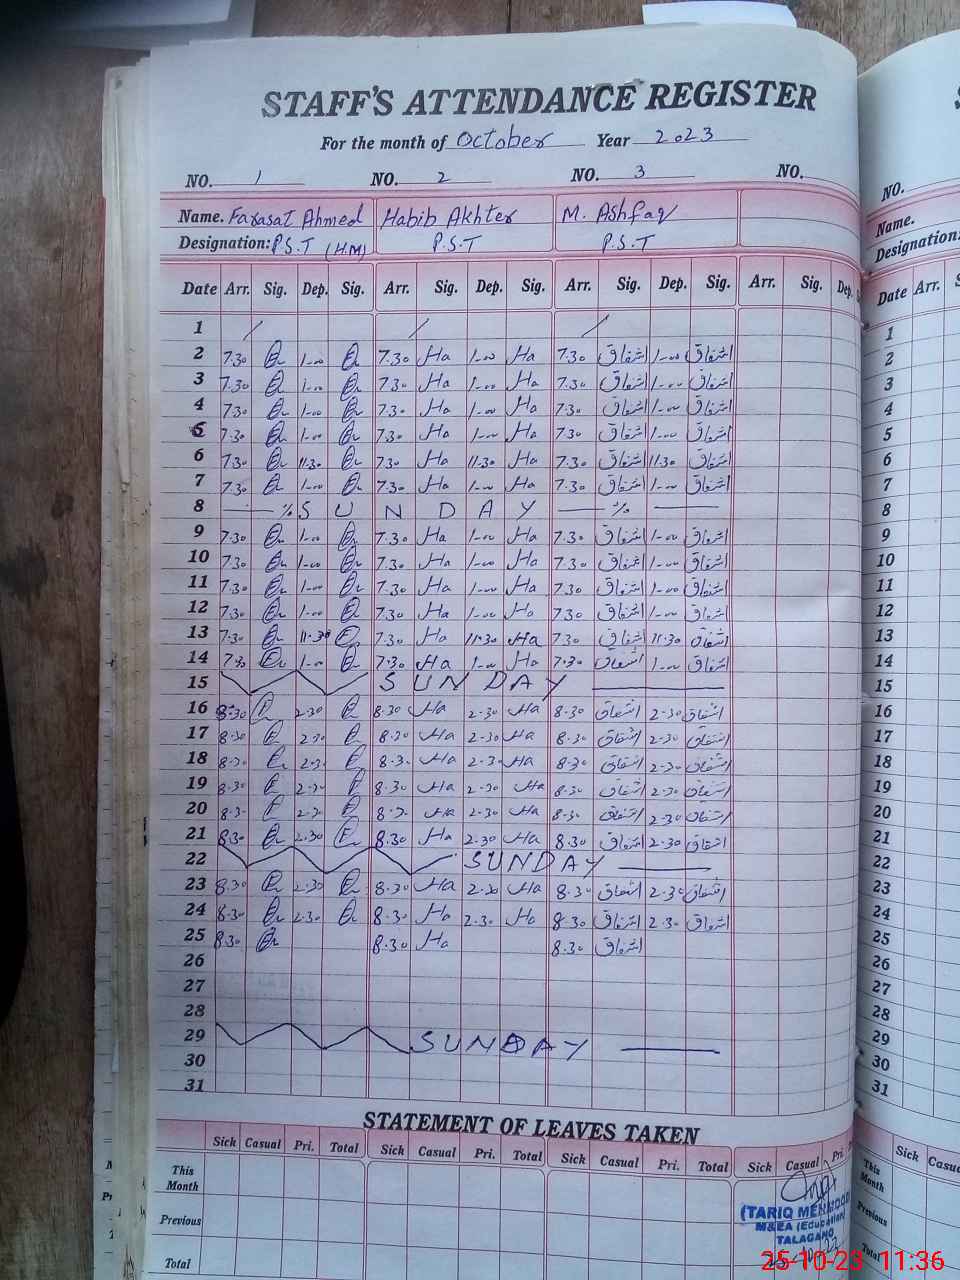 STAFF'S ATTENDANCE REGISTER
For the month of October Year 2023
NO. 1 NO. 2 NO. 3 NO.
Name. Farasat Ahmed Habib Akhter M. Ashfaq
Designation: P.S.T (H.M) P.S.T P.S.T
Date Arr. Sig. Dep. Sig. Arr. Sig. Dep. Sig. Arr. Sig. Dep. Sig. Arr. Sig. Dep.
1 / / /
2 7.30 1-00 7.30 Ha 1-00 Ha 7.30 اشفاق 1-00 اشفاق
3 7.30 1-00 7.30 Ha 1-00 Ha 7.30 اشفاق 1-00 اشفاق
4 7.30 1-00 7.30 Ha 1-00 Ha 7.30 اشفاق 1-00 اشفاق
5 7.30 1-00 7.30 Ha 1-00 Ha 7.30 اشفاق 1-00 اشفاق
6 7.30 11.30 7.30 Ha 11.30 Ha 7.30 اشفاق 11.30 اشفاق
7 7.30 1-00 7.30 Ha 1-00 Ha 7.30 اشفاق 1-00 اشفاق
8 SUNDAY
9 7.30 1-00 7.30 Ha 1-00 Ha 7.30 اشفاق 1-00 اشفاق
10 7.30 1-00 7.30 Ha 1-00 Ha 7.30 اشفاق 1-00 اشفاق
11 7.30 1-00 7.30 Ha 1-00 Ha 7.30 اشفاق 1-00 اشفاق
12 7.30 1-00 7.30 Ha 1-00 Ha 7.30 اشفاق 1-00 اشفاق
13 7.30 11.30 7.30 Ha 11.30 Ha 7.30 اشفاق 11.30 اشفاق
14 7.30 1-00 7.30 Ha 1-00 Ha 7.30 اشفاق 1-00 اشفاق
15 SUNDAY
16 8.30 2.30 8.30 Ha 2.30 Ha 8.30 اشفاق 2.30 اشفاق
17 8.30 2.30 8.30 Ha 2.30 Ha 8.30 اشفاق 2.30 اشفاق
18 8.30 2.30 8.30 Ha 2.30 Ha 8.30 اشفاق 2.30 اشفاق
19 8.30 2.30 8.30 Ha 2.30 Ha 8.30 اشفاق 2.30 اشفاق
20 8.30 2.30 8.30 Ha 2.30 Ha 8.30 اشفاق 2.30 اشفاق
21 8.30 2.30 8.30 Ha 2.30 Ha 8.30 اشفاق 2.30 اشفاق
22 SUNDAY
23 8.30 2.30 8.30 Ha 2.30 Ha 8.30 اشفاق 2.30 اشفاق
24 8.30 2.30 8.30 Ha 2.30 Ha 8.30 اشفاق 2.30 اشفاق
25 8.30 8.30 Ha 8.30 اشفاق
26
27
28
29 SUNDAY
30
31
STATEMENT OF LEAVES TAKEN
Sick Casual Pri. Total Sick Casual Pri. Total Sick Casual Pri. Total Sick Casual Pri.
This Month
Previous
Total
(TARIQ MEHMOOD
M&EA (Education)
TALAGANG
NO.
Name.
Designation:
Date Arr.
1
2
3
4
5
6
7
8
9
10
11
12
13
14
15
16
17
18
19
20
21
22
23
24
25
26
27
28
29
30
31
Sick
This Month
Previous
Total
25-10-23 11:36